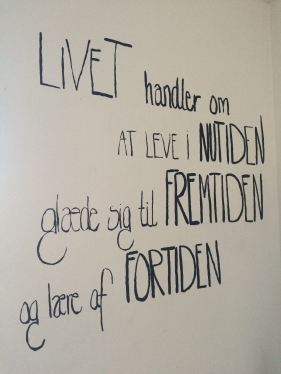 LIVET handler om
AT LEVE i NUTIDEN
glæde sig til FREMTIDEN
og lære af FORTIDEN